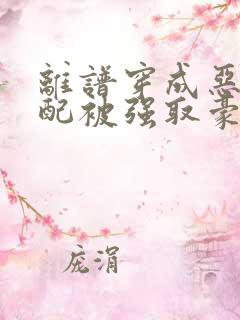 離譜穿成惡
配被强取豪
庞涓